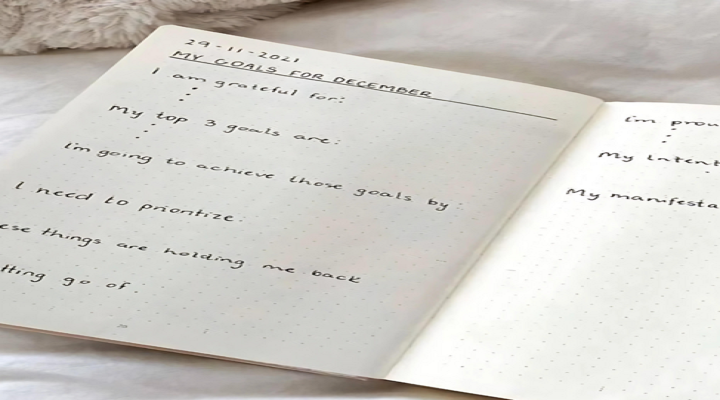 29-11-2021
MY GOALS FOR DECEMBER
I am grateful for:
My top 3 goals are:
I'm going to achieve those goals by:
I need to prioritize:
ese things are holding me back
tting go of:
I'm prou
My intent
My manifesta